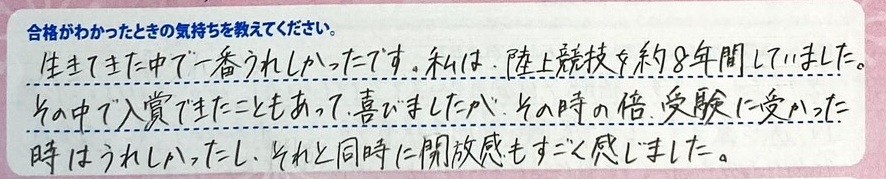 合格がわかったときの気持ちを教えてください。
生きてきた中で一番うれしかったです。私は、陸上競技を約8年間していました。
その中で入賞できたこともあって、喜びましたが、その時の倍、受験に受かった
時はうれしかったし、それと同時に開放感もすごく感じました。